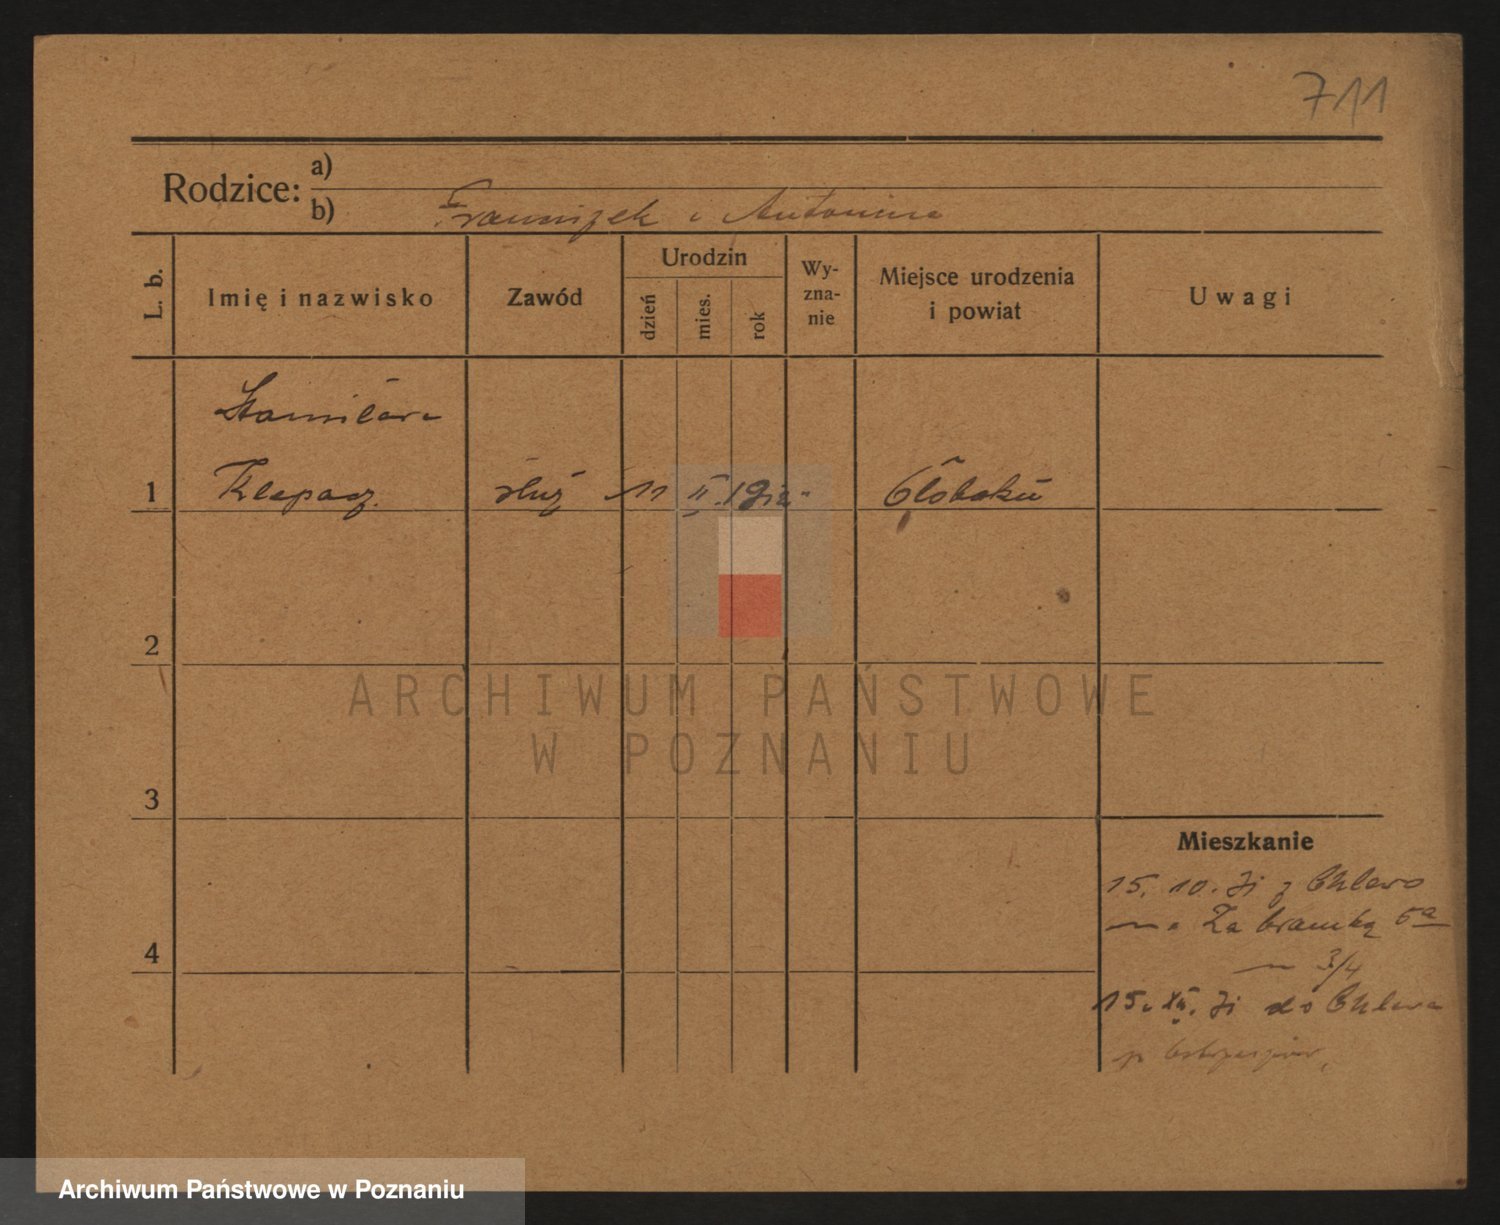 711
Rodzice:
a)
b) Franciszek i Antonina
L. b.
Imię i nazwisko
Zawód
Urodzin
dzień
mies.
rok
Wy-
zna-
nie
Miejsce urodzenia
i powiat
Uwagi
Stanisława
1 Klepacz służ 11 II
2
3
4
Mieszkanie
15. 10. z Chlewo
Za bramką 5a
3/4
15. XII. do Chlewa
p
ARCHIWUM PAŃSTWOWE
W POZNANIU
Archiwum Państwowe w Poznaniu